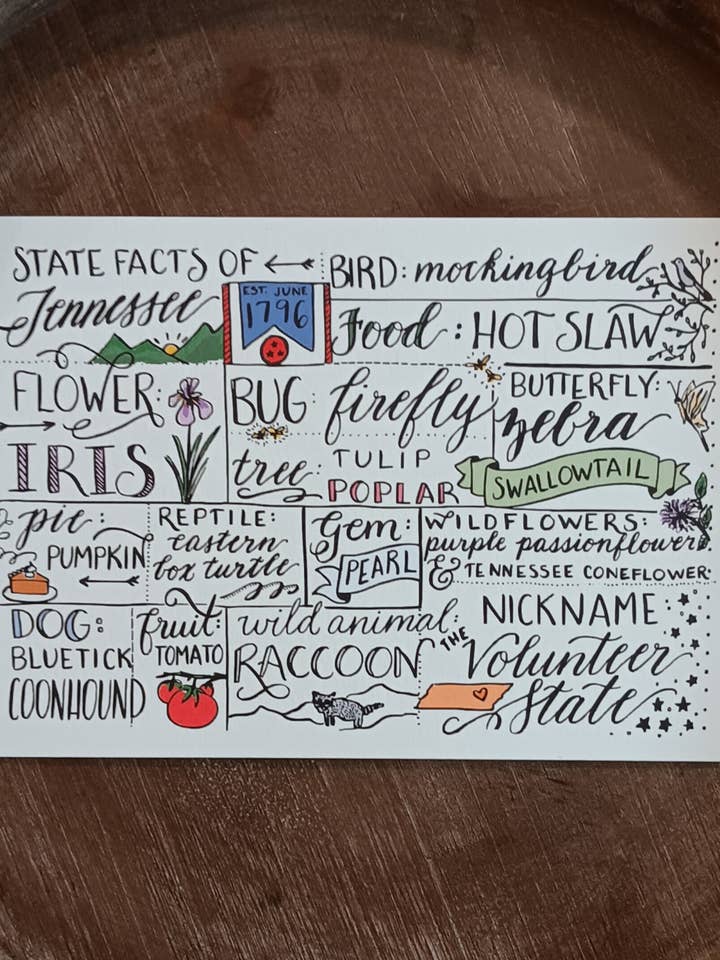 STATE FACTS OF
Tennessee
EST. JUNE
1796
BIRD: mockingbird
Food: HOT SLAW
FLOWER:
IRIS
BUG: firefly
tree: TULIP
POPLAR
BUTTERFLY:
zebra
SWALLOWTAIL
pie:
PUMPKIN
REPTILE:
eastern
box turtle
Gem:
PEARL
WILDFLOWERS:
purple passionflower
& TENNESSEE CONEFLOWER
DOG:
BLUETICK
COONHOUND
fruit:
TOMATO
wild animal:
RACCOON
NICKNAME:
THE Volunteer
State